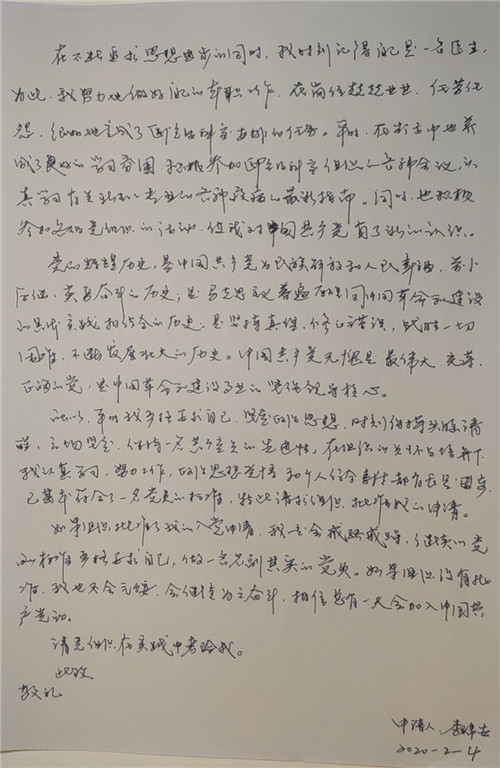 在不断追求思想进步的同时，我时刻记得自己是一名医生，
为此，我努力地做好自己的本职工作，在岗位兢兢业业，任劳任
怨，很好地完成了医院的科室安排的任务。平时，在科室中也养
成了良好的学习氛围，积极参加医院的科室组织的各种会议，认
真学习有关的专业的各种疾病的最新指南。同时，也积极
参加各项党组织的活动，使我对中国共产党有了新的认识。
党的辉煌历史，是中国共产党为民族解放和人民幸福，前
仆后继，英勇奋斗的历史；是马克思主义普遍原理同中国革命和建设
的具体实践相结合的历史；是坚持真理，修正错误，战胜一切
困难，不断发展壮大的历史。中国共产党无愧是最伟大、光荣、
正确的党，是中国革命和建设事业的坚强领导核心。
所以，平时我严格要求自己，坚定政治思想，时刻保持头脑清
醒，立场坚定，保持一名共产党员的先进性。在组织的关怀与培养下，
我认真学习，努力工作，政治思想觉悟和个人综合素材都有长足进步，
已基本符合了一名党员的标准，特此请求组织批准我的申请。
如果组织批准了我的入党申请，我定会戒骄戒躁，继续以党
的标准严格要求自己，做一名名副其实的党员。如果组织没有批
准，我也不会气馁，会继续为之奋斗，相信总有一天会加入中国共
产党的。
请党组织在实践中考验我。
此致
敬礼
申请人：李
2020-2-4